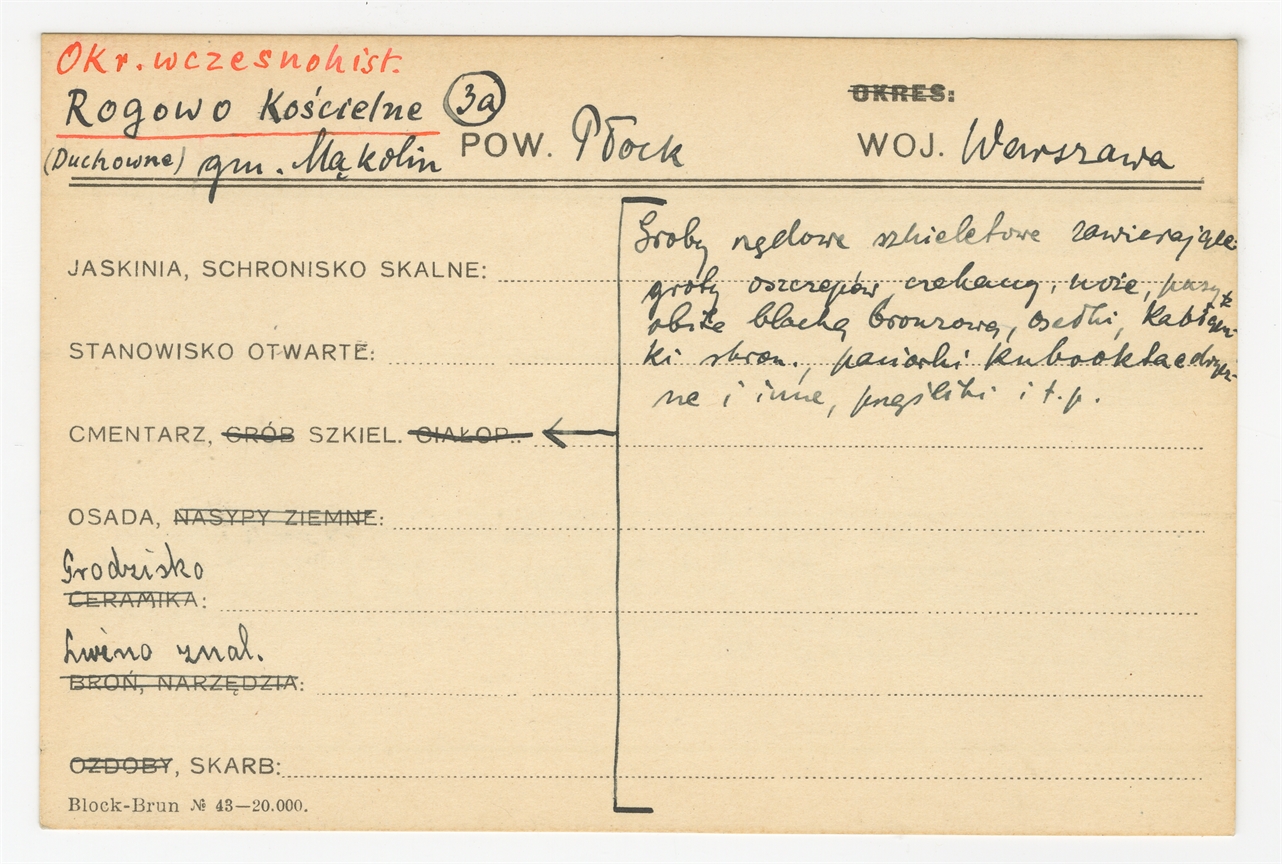 Okr. wczesnohist.
Rogowo Kościelne 3a
OKRES:
(Duchowne) gm. Mąkolin POW. Płock WOJ. Warszawa
Groby rzędowe szkieletowe zawierające:
JASKINIA, SCHRONISKO SKALNE:
groty oszczepów, czekany, noże, pasy
obite blachą bronzową, osełki, kabłącz-
STANOWISKO OTWARTE:
ki sbron., paciorki kubooktaedrycz-
ne i inne, przęśliki i t.p.
CMENTARZ, GRÓB SZKIEL. CIAŁOP.:
OSADA, NASYPY ZIEMNE:
Grodzisko
CERAMIKA:
Luźno znal.
BROŃ, NARZĘDZIA:
OZDOBY, SKARB:
Block-Brun № 43—20.000.